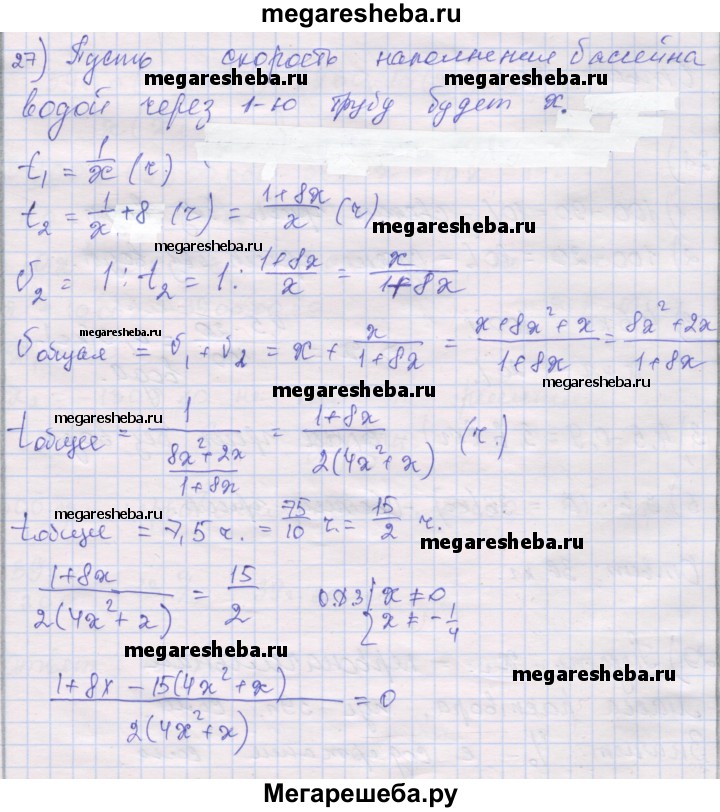 megaresheba.ru
27) Пусть скорость наполнения бассейна
megaresheba.ru megaresheba.ru
водой через 1-ю трубу будет x.
t₁ = 1/x (ч.)
t₂ = 1/x + 8 (ч) = (1+8x)/x (ч)
megaresheba.ru megaresheba.ru
v₂ = 1 : t₂ = 1 : (1+8x)/x = x/(1+8x)
megaresheba.ru
vобщая = v₁ + v₂ = x + x/(1+8x) = (x+8x²+x)/(1+8x) = (8x²+2x)/(1+8x)
megaresheba.ru
megaresheba.ru
megaresheba.ru
tобщее = 1/((8x²+2x)/(1+8x)) = (1+8x)/(2(4x²+x)) (ч.)
megaresheba.ru
tобщее = 7,5 ч. = 75/10 ч. = 15/2 ч.
megaresheba.ru
(1+8x)/(2(4x²+x)) = 15/2 ОДЗ { x ≠ 0
x ≠ -1/4
megaresheba.ru
megaresheba.ru
(1+8x-15(4x²+x))/(2(4x²+x)) = 0
Мегарешеба.ру